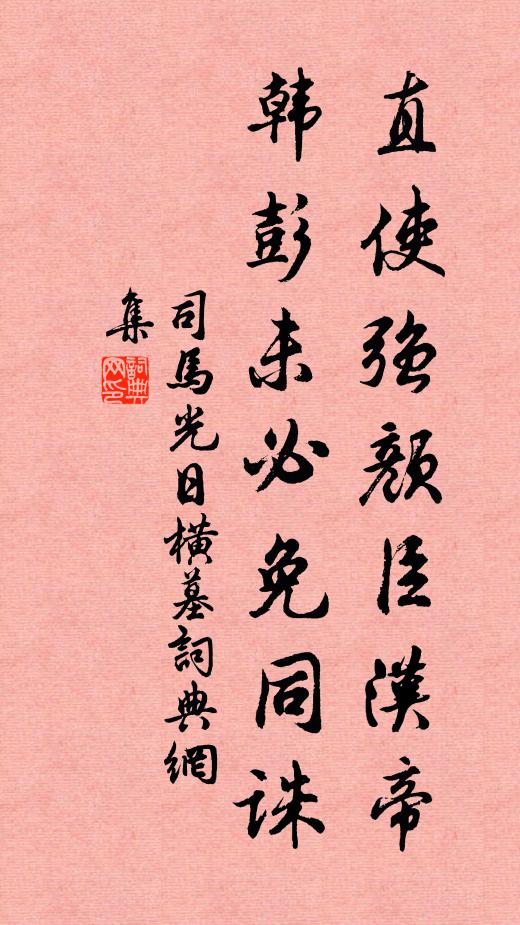 直使強顏臣漢帝
韓彭未必免同誅
司馬光日橫墓詞典網
集
詞典網印